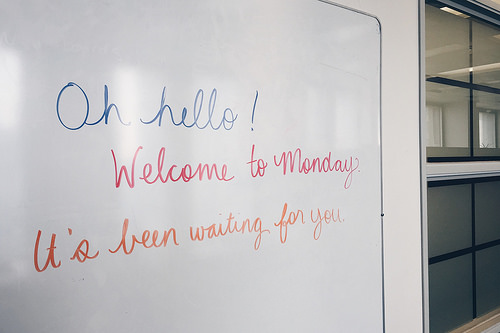 Oh hello!
Welcome to Monday.
It's been waiting for you.